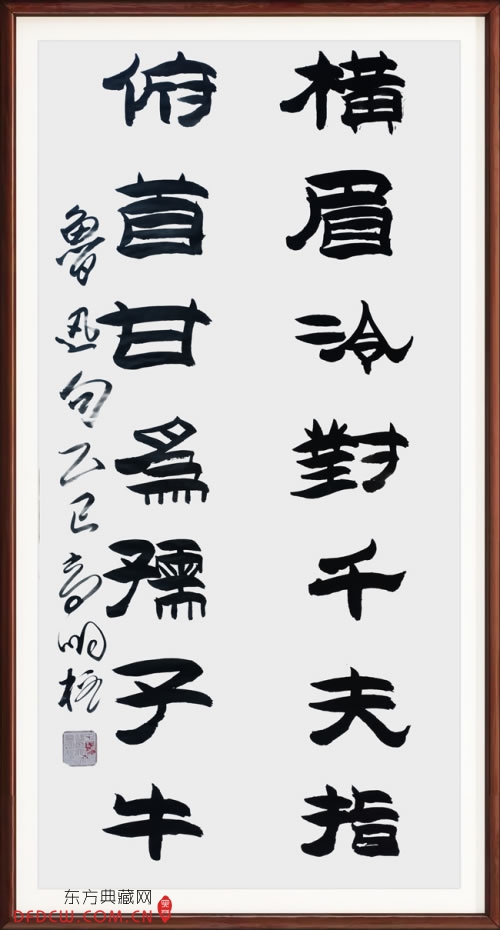 橫眉冷對千夫指
俯首甘為孺子牛
魯迅句乙巳高明
东方典藏网
DFDCW.COM.CN